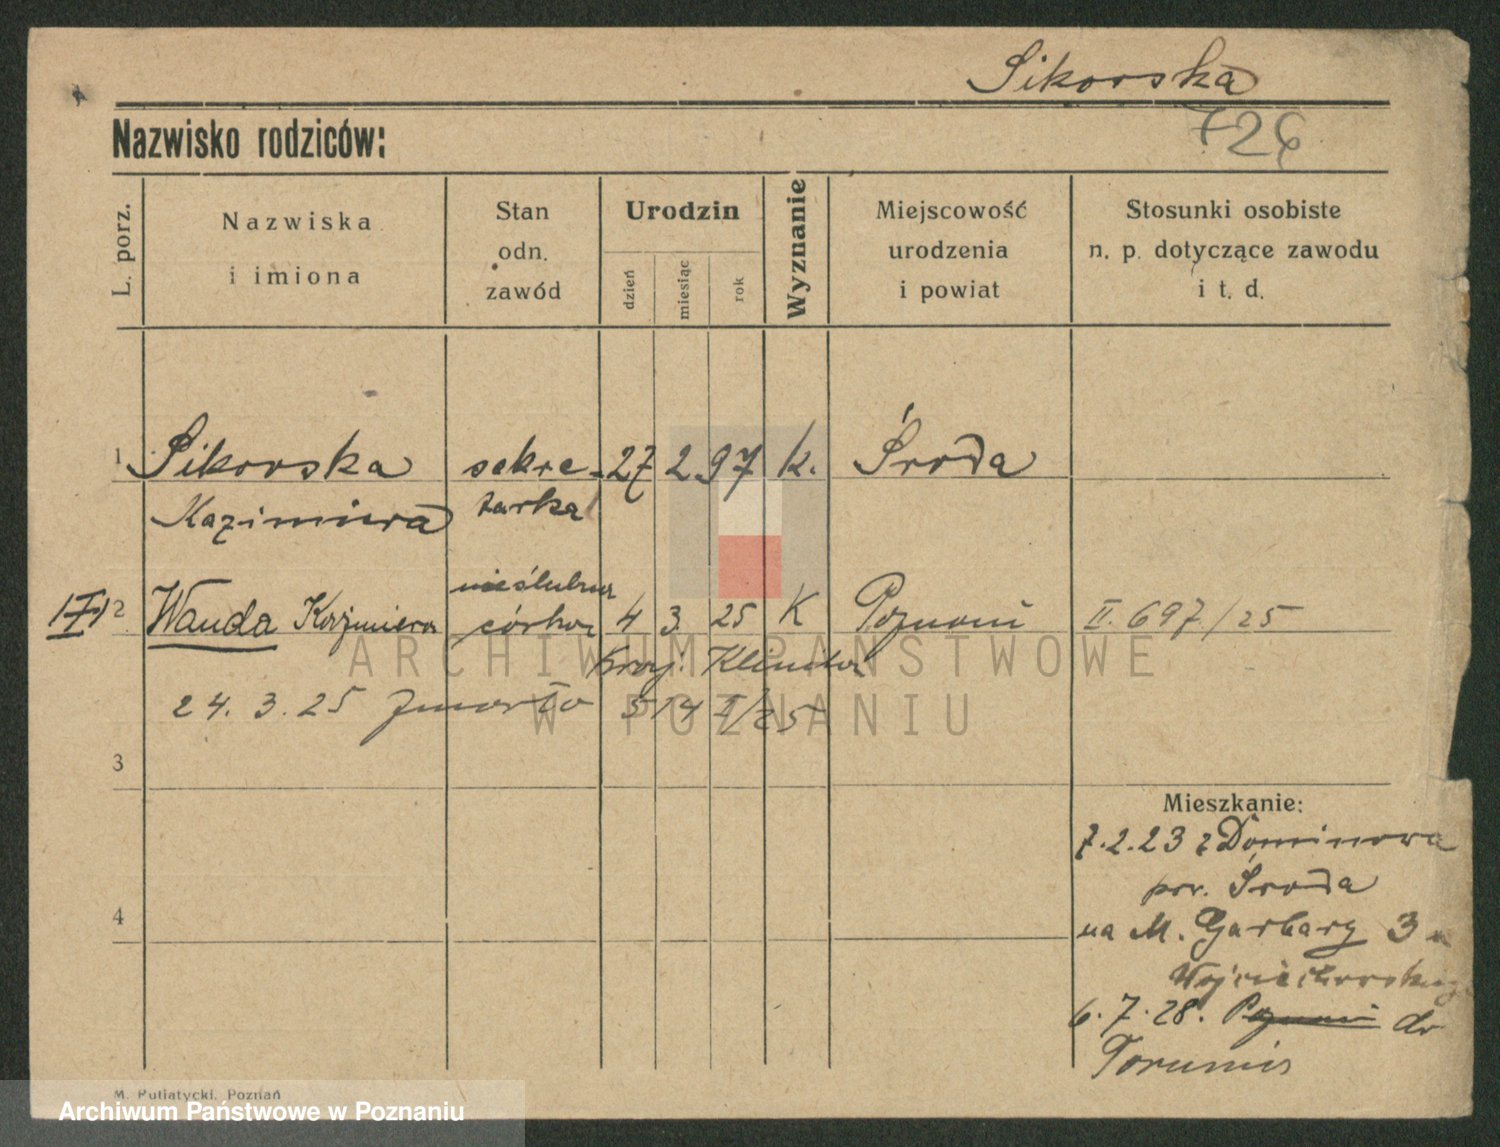 Sikorska
Nazwisko rodziców:
726
L. porz.
Nazwiska
i imiona
Stan
odn.
zawód
Urodzin
dzień
miesiąc
rok
Wyznanie
Miejscowość
urodzenia
i powiat
Stosunki osobiste
n. p. dotyczące zawodu
i t. d.
1 Sikorska sekre- 27 2 97 k. Środa
Kazimiera tarka
nieślubna
2 Wanda Kazimiera córka 4 3. 25 K Poznań II. 697/25
24. 3. 25 zmarło 514 II/25
3
4
Mieszkanie:
7.2.23 z Dominowa
pow. Środa
na M. Garbary 3 u
6.7.28. Poznań do
Torunia
M. Putiatycki, Poznań
ARCHIWUM PAŃSTWOWE
W POZNANIU
Archiwum Państwowe w Poznaniu